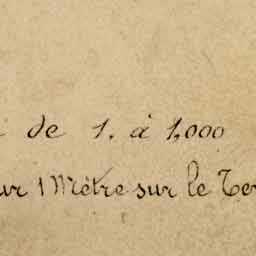 de 1. à 1,000
1 Mètre sur le